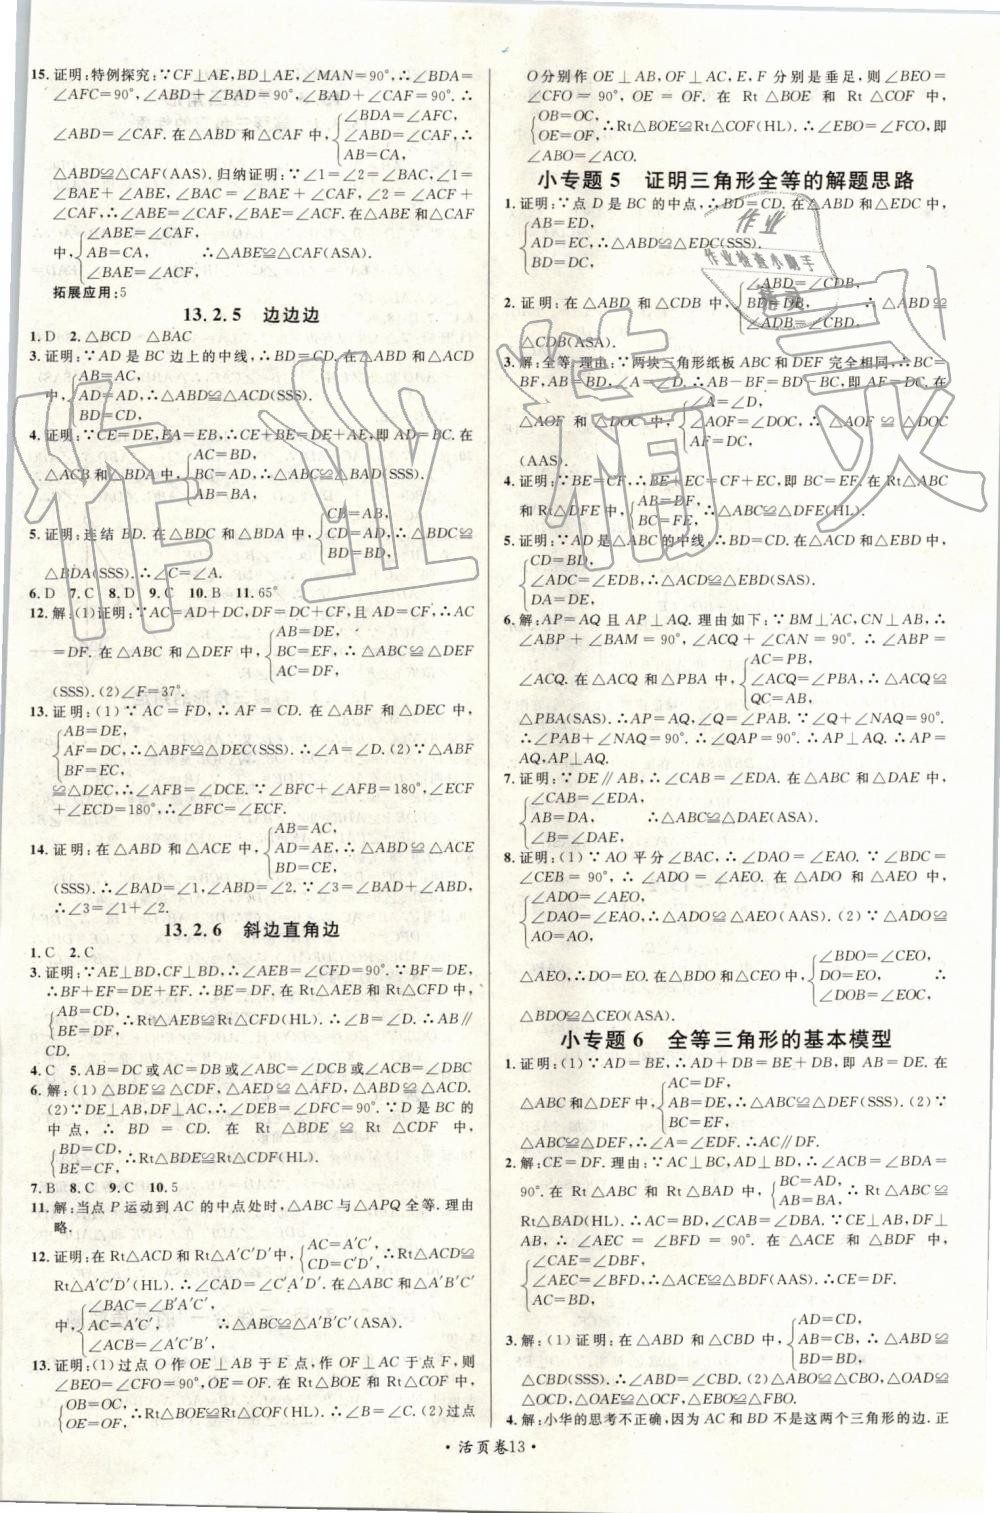 15.证明:特例探究:∵CF⊥AE,BD⊥AE,∠MAN=90°,∴∠BDA=
∠AFC=90°,∠ABD+∠BAD=90°,∠BAD+∠CAF=90°.∴
∠ABD=∠CAF.在△ABD和△CAF中,{∠BDA=∠AFC,
∠ABD=∠CAF,∴
AB=CA,
△ABD≌△CAF(AAS).归纳证明:∵∠1=∠2=∠BAC,∠1=
∠BAE+∠ABE,∠BAC=∠BAE+∠CAF,∠2=∠ACF+
∠CAF,∴∠ABE=∠CAF,∠BAE=∠ACF.在△ABE和△CAF
中,{∠ABE=∠CAF,
AB=CA, ∴△ABE≌△CAF(ASA).
∠BAE=∠ACF,
拓展应用:5
13.2.5 边边边
1.D 2.△BCD △BAC
3.证明:∵AD是BC边上的中线,∴BD=CD.在△ABD和△ACD
中,{AB=AC,
AD=AD,∴△ABD≌△ACD(SSS).
BD=CD,
4.证明:∵CE=DE,EA=EB,∴CE+BE=DE+AE,即AD=BC.在
△ACB和△BDA中,{AC=BD,
BC=AD,∴△ABC≌△BAD(SSS).
AB=BA,
5.证明:连结BD.在△BDC和△BDA中,{CB=AB,
CD=AD,∴△BDC≌
BD=BD,
△BDA(SSS).∴∠C=∠A.
6.D 7.C 8.D 9.C 10.B 11.65°
12.解:(1)证明:∵AC=AD+DC,DF=DC+CF,且AD=CF,∴AC
=DF.在△ABC和△DEF中,{AB=DE,
BC=EF,∴△ABC≌△DEF
AC=DF,
(SSS).(2)∠F=37°.
13.证明:(1)∵AC=FD,∴AF=CD.在△ABF和△DEC中,
{AB=DE,
AF=DC,∴△ABF≌△DEC(SSS).∴∠A=∠D.(2)∵△ABF
BF=EC,
≌△DEC,∴∠AFB=∠DCE.∵∠BFC+∠AFB=180°,∠ECF
+∠ECD=180°,∴∠BFC=∠ECF.
14.证明:在△ABD和△ACE中,{AB=AC,
AD=AE,∴△ABD≌△ACE
BD=CE,
(SSS).∴∠BAD=∠1,∠ABD=∠2.∵∠3=∠BAD+∠ABD,
∴∠3=∠1+∠2.
13.2.6 斜边直角边
1.C 2.C
3.证明:∵AE⊥BD,CF⊥BD,∴∠AEB=∠CFD=90°.∵BF=DE,
∴BF+EF=DE+EF.∴BE=DF.在Rt△AEB和Rt△CFD中,
{AB=CD,
BE=DF,∴Rt△AEB≌Rt△CFD(HL).∴∠B=∠D.∴AB∥
CD.
4.C 5.AB=DC或AC=DB或∠ABC=∠DCB或∠ACB=∠DBC
6.解:(1)△BDE≌△CDF,△AED≌△AFD,△ABD≌△ACD.
(2)∵DE⊥AB,DF⊥AC,∴∠DEB=∠DFC=90°.∵D是BC的
中点,∴BD=CD.在Rt△BDE≌Rt△CDF中,
{BD=CD,
BE=CF,∴Rt△BDE≌Rt△CDF(HL).
7.B 8.C 9.C 10.5
11.解:当点P运动到AC的中点处时,△ABC与△APQ全等.理由
略.
12.证明:在Rt△ACD和Rt△A′C′D′中,{AC=A′C′,
CD=C′D′,∴Rt△ACD≌
Rt△A′C′D′(HL).∴∠CAD=∠C′A′D′.在△ABC和△A′B′C′
{∠BAC=∠B′A′C′,
中,AC=A′C′, ∴△ABC≌△A′B′C′(ASA).
∠ACB=∠A′C′B′,
13.证明:(1)过点O作OE⊥AB于E点,作OF⊥AC于点F,则
∠BEO=∠CFO=90°,OE=OF.在Rt△BOE和Rt△COF中,
{OB=OC,
OE=OF,∴Rt△BOE≌Rt△COF(HL).∴∠B=∠C.(2)过点
O分别作OE⊥AB,OF⊥AC,E,F分别是垂足,则∠BEO=
∠CFO=90°,OE=OF.在Rt△BOE和Rt△COF中,
{OB=OC,
OE=OF,∴Rt△BOE≌Rt△COF(HL).∴∠EBO=∠FCO,即
∠ABO=∠ACO.
小专题5 证明三角形全等的解题思路
1.证明:∵点D是BC的中点,∴BD=CD.在△ABD和△EDC中,
{AB=ED,
AD=EC,∴△ABD≌△EDC(SSS).
BD=DC,
2.证明:在△ABD和△CDB中,{∠ABD=∠CDB,
BD=DB, ∴△ABD≌
∠ADB=∠CBD,
△CDB(ASA).
3.解:全等.理由:∵两块三角形纸板ABC和DEF完全相同,∴BC=
BF,AB=BD,∠A=∠D.∴AB-BF=BD-BC,即AF=DC.在
△AOF和△DOC中,{∠A=∠D,
∠AOF=∠DOC,∴△AOF≌△DOC
AF=DC,
(AAS).
4.证明:∵BE=CF,∴BE+EC=CF+EC,即BC=EF.在Rt△ABC
和Rt△DFE中,{AB=DF,
BC=FE,∴△ABC≌△DFE(HL).
5.证明:∵AD是△ABC的中线,∴BD=CD.在△ACD和△EBD中,
{CD=BD,
∠ADC=∠EDB,∴△ACD≌△EBD(SAS).
DA=DE,
6.解:AP=AQ且AP⊥AQ.理由如下:∵BM⊥AC,CN⊥AB,∴
∠ABP+∠BAM=90°,∠ACQ+∠CAN=90°.∴∠ABP=
∠ACQ.在△ACQ和△PBA中,{AC=PB,
∠ACQ=∠PBA,∴△ACQ≌
QC=AB,
△PBA(SAS).∴AP=AQ,∠Q=∠PAB.∵∠Q+∠NAQ=90°.
∴∠PAB+∠NAQ=90°.∴∠QAP=90°.∴AP⊥AQ.∴AP=
AQ,AP⊥AQ.
7.证明:∵DE∥AB,∴∠CAB=∠EDA.在△ABC和△DAE中,
{∠CAB=∠EDA,
AB=DA, ∴△ABC≌△DAE(ASA).
∠B=∠DAE,
8.证明:(1)∵AO平分∠BAC,∴∠DAO=∠EAO.∵∠BDC=
∠CEB=90°,∴∠ADO=∠AEO.在△ADO和△AEO中,
{∠ADO=∠AEO,
∠DAO=∠EAO,∴△ADO≌△AEO(AAS).(2)∵△ADO≌
AO=AO,
△AEO,∴DO=EO.在△BDO和△CEO中,{∠BDO=∠CEO,
DO=EO, ∴
∠DOB=∠EOC,
△BDO≌△CEO(ASA).
小专题6 全等三角形的基本模型
1.证明:(1)∵AD=BE,∴AD+DB=BE+DB,即AB=DE.在
△ABC和△DEF中,{AC=DF,
AB=DE,∴△ABC≌△DEF(SSS).(2)∵
BC=EF,
△ABC≌△DEF,∴∠A=∠EDF.∴AC∥DF.
2.解:CE=DF.理由:∵AC⊥BC,AD⊥BD,∴∠ACB=∠BDA=
90°.在Rt△ABC和Rt△BAD中,{BC=AD,
AB=BA,∴Rt△ABC≌
Rt△BAD(HL).∴AC=BD,∠CAB=∠DBA.∵CE⊥AB,DF⊥
AB,∴∠AEC=∠BFD=90°.在△ACE和△BDF中,
{∠CAE=∠DBF,
∠AEC=∠BFD,∴△ACE≌△BDF(ASA).∴CE=DF.
AC=BD,
3.解:(1)证明:在△ABD和△CBD中,{AD=CD,
AB=CB,∴△ABD≌
BD=BD,
△CBD(SSS).∴∠ABD=∠CBD.(2)△ABO≌△CBO,△OAD≌
△OCD,△OAE≌△OCF,△EBO≌△FBO.
4.解:小华的思考不正确,因为AC和BD不是这两个三角形的边.正
·活页卷13·
作业
作业检查小助手
精灵
作业精灵